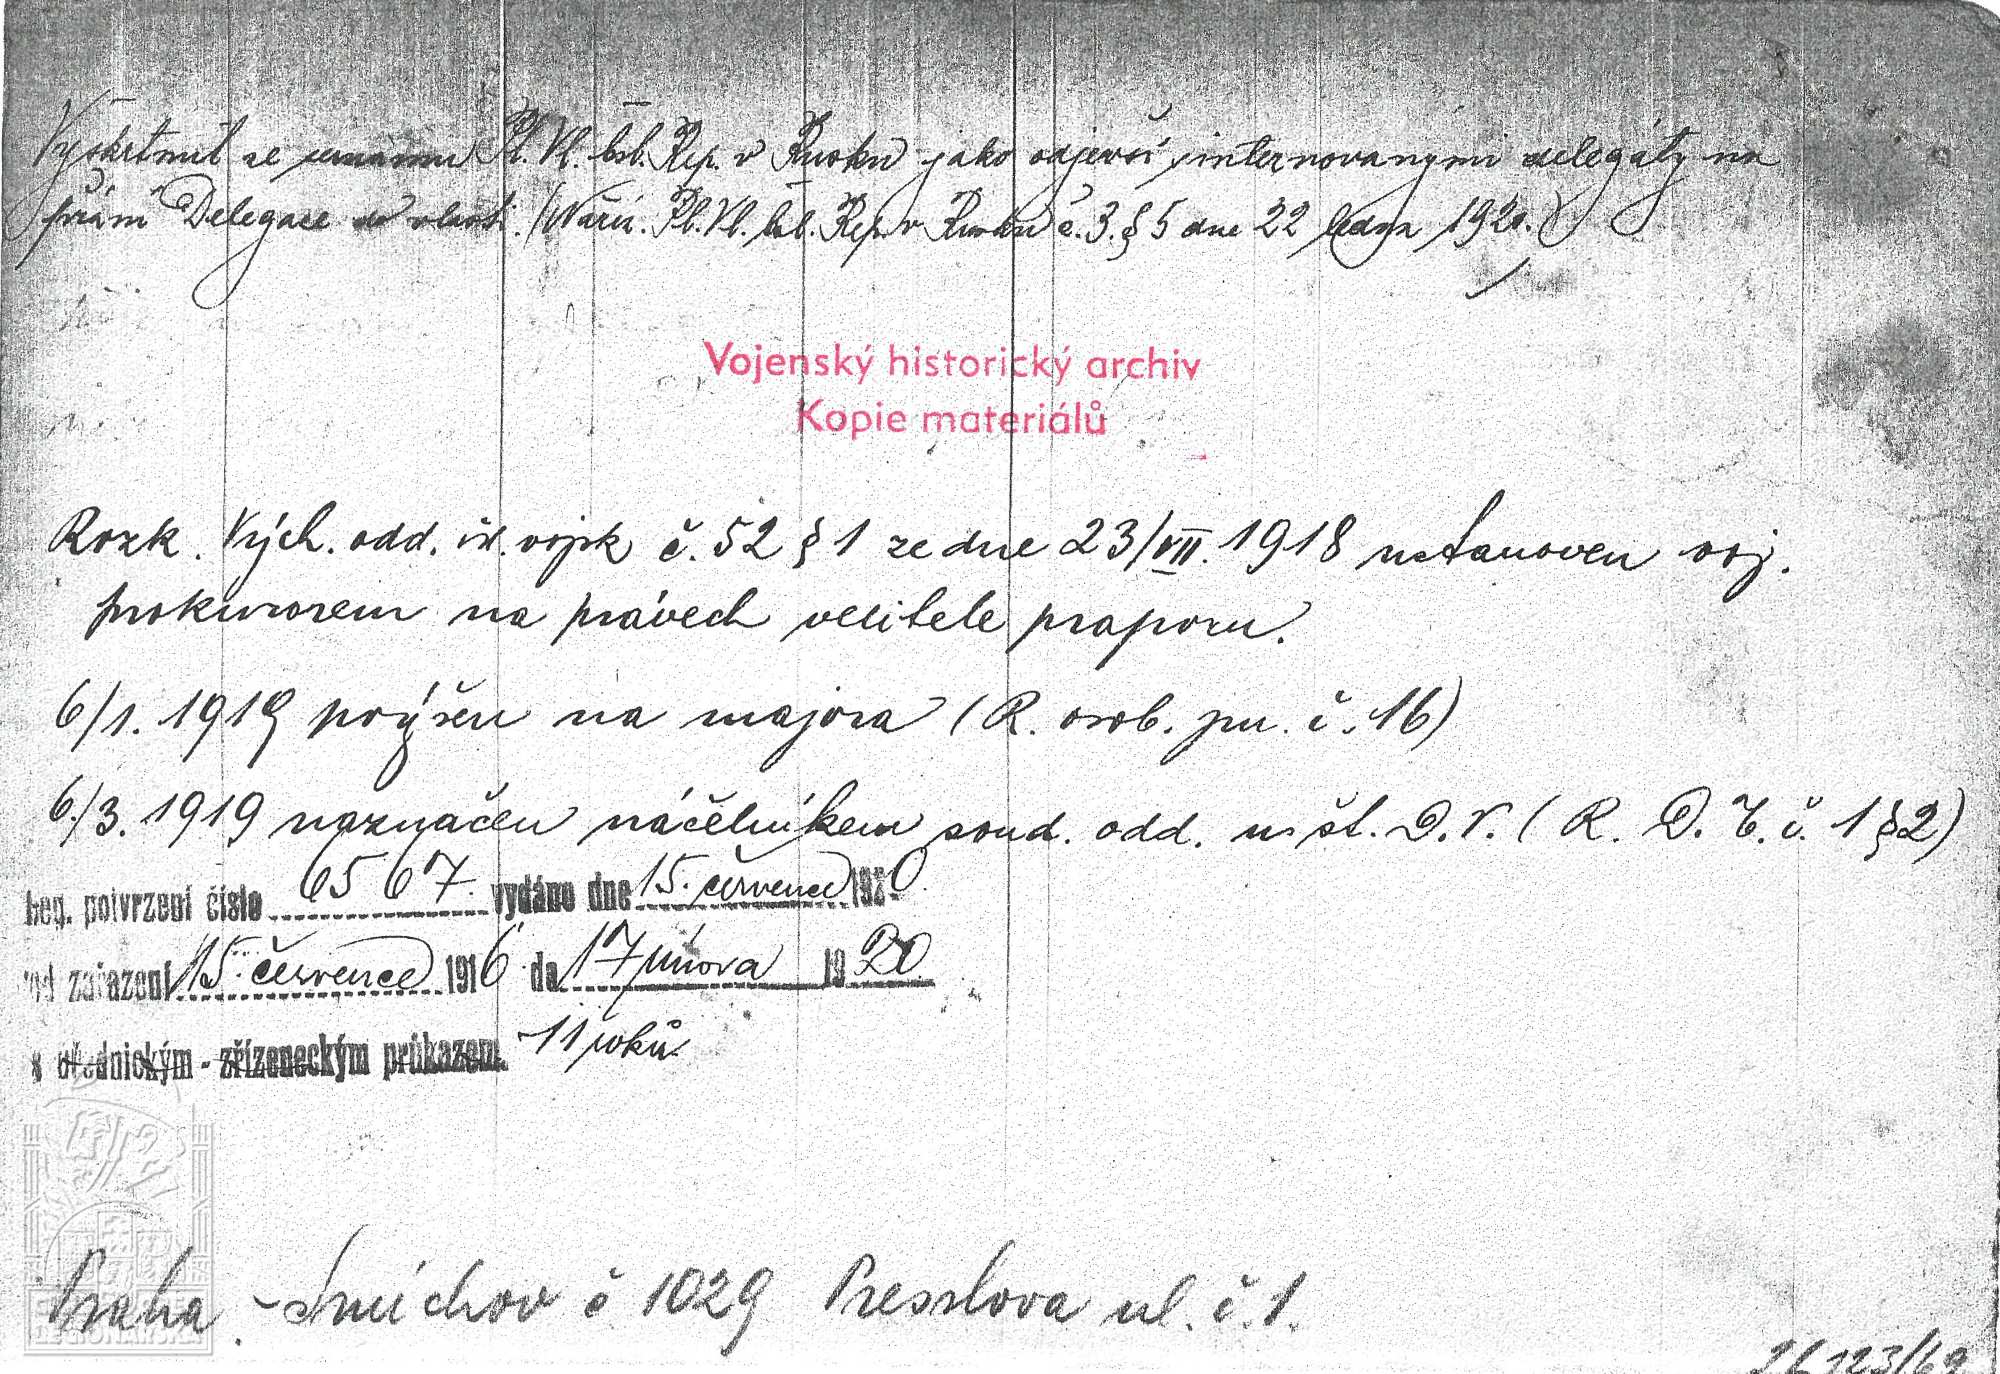 Vyškrtnut ze seznamu Pl. Vl. čsl. Rep. v Rusku jako odjevší s internovanými delegáty na
přání Delegace do vlasti. (Nařiz. Pl. Vl. čsl. Rep. v Rusku č. 3. § 5 dne 22 ledna 1920.)
Vojenský historický archiv
Kopie materiálů
Rozk. Vých. odd. čs. vojsk č. 52 § 1 ze dne 23/VII. 1918 ustanoven voj.
prokurorem na právech velitele praporu.
6/1. 1919 povýšen na majora (R. osob. pu. č. 16)
6./3. 1919 naznačen náčelníkem soud. odd. u št. D.V. ( R. D. T. č. 1 § 2)
Leg. potvrzení číslo 6567. vydáno dne 15. července 1920.
od zařazení 15. července 1916 do 17 února 1920.
s úřednickým - zřízeneckým průkazem. 11 roků.
Praha - Smíchov č 1029 Presslova ul. č. 1.
OBEC
LEGIONÁŘSKÁ